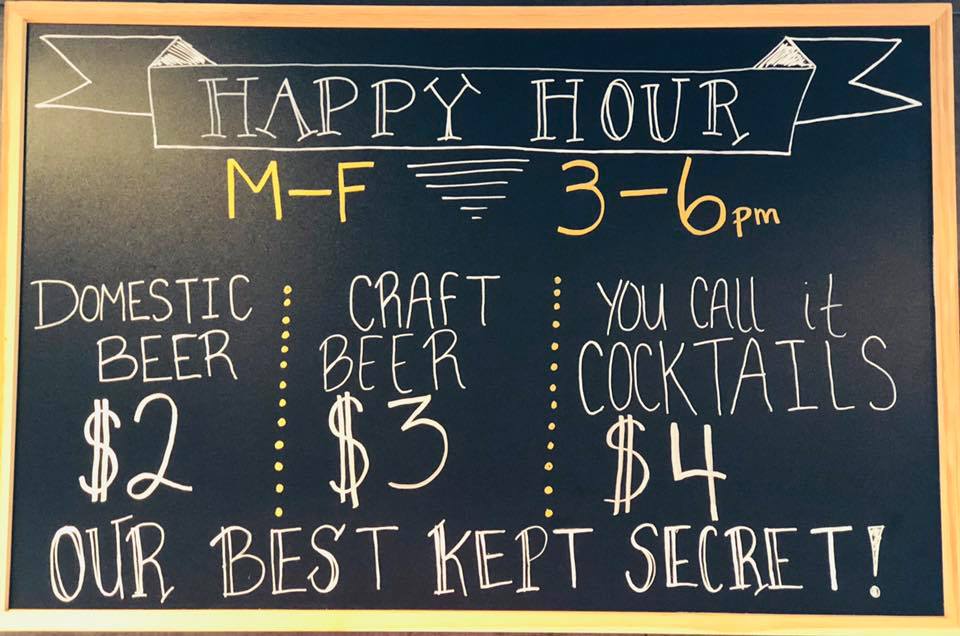 HAPPY HOUR
M-F 3-6pm
DOMESTIC
BEER
$2
CRAFT
BEER
$3
YOU CALL it
COCKTAILS
$4
OUR BEST KEPT SECRET!